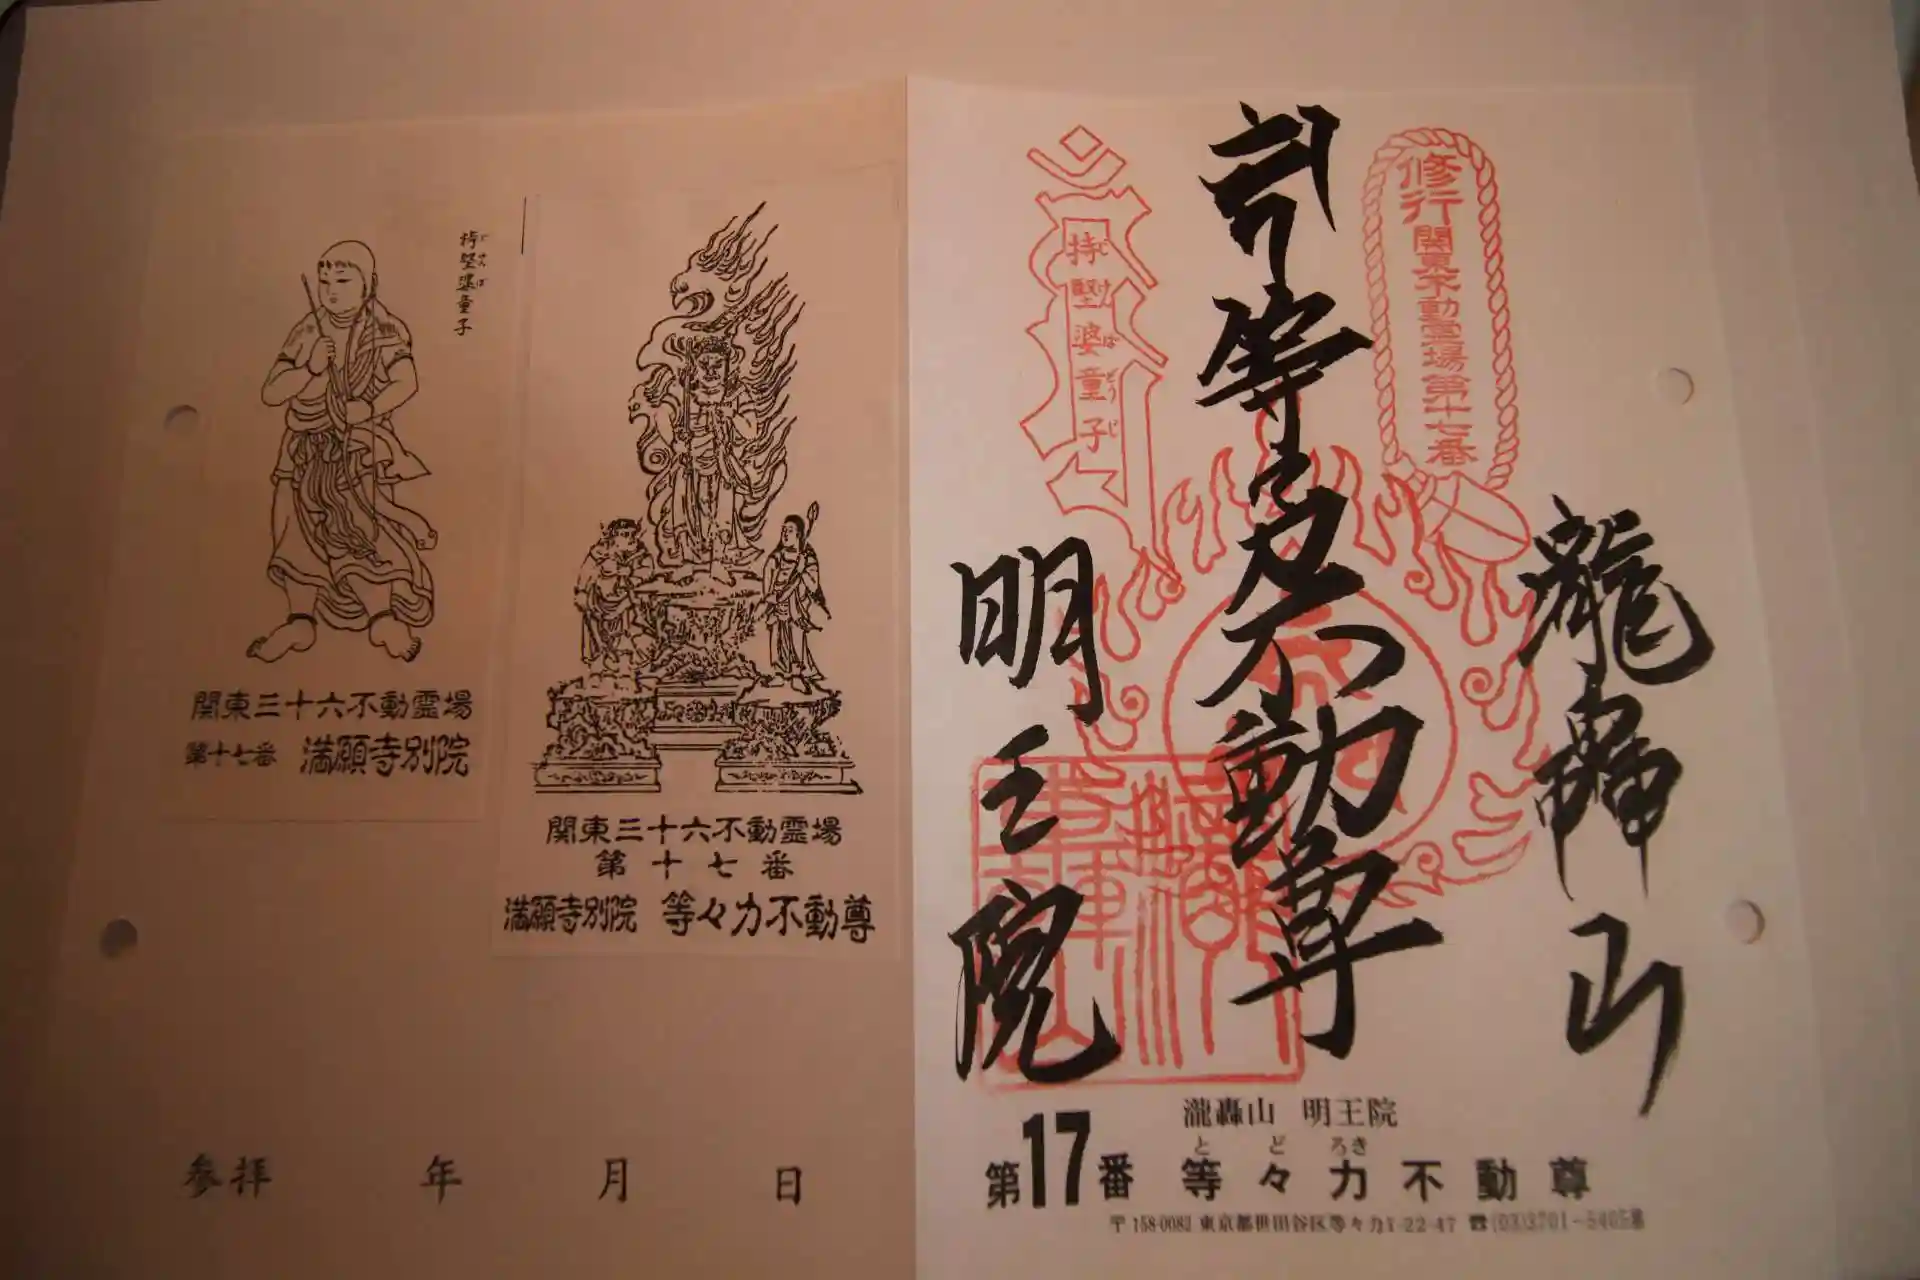 持堅婆童子
関東三十六不動霊場
第十七番 満願寺別院
関東三十六不動霊場
第十七番
満願寺別院 等々力不動尊
参拝 年 月 日
修行関東不動霊場第十七番
持堅婆童子
じけんばどうじ
瀧轟山
等々力不動尊
明王院
瀧轟山 明王院
とどろき
第17番 等々力不動尊
〒158-0082 東京都世田谷区等々力1-22-47 ☎(03)3701-5405